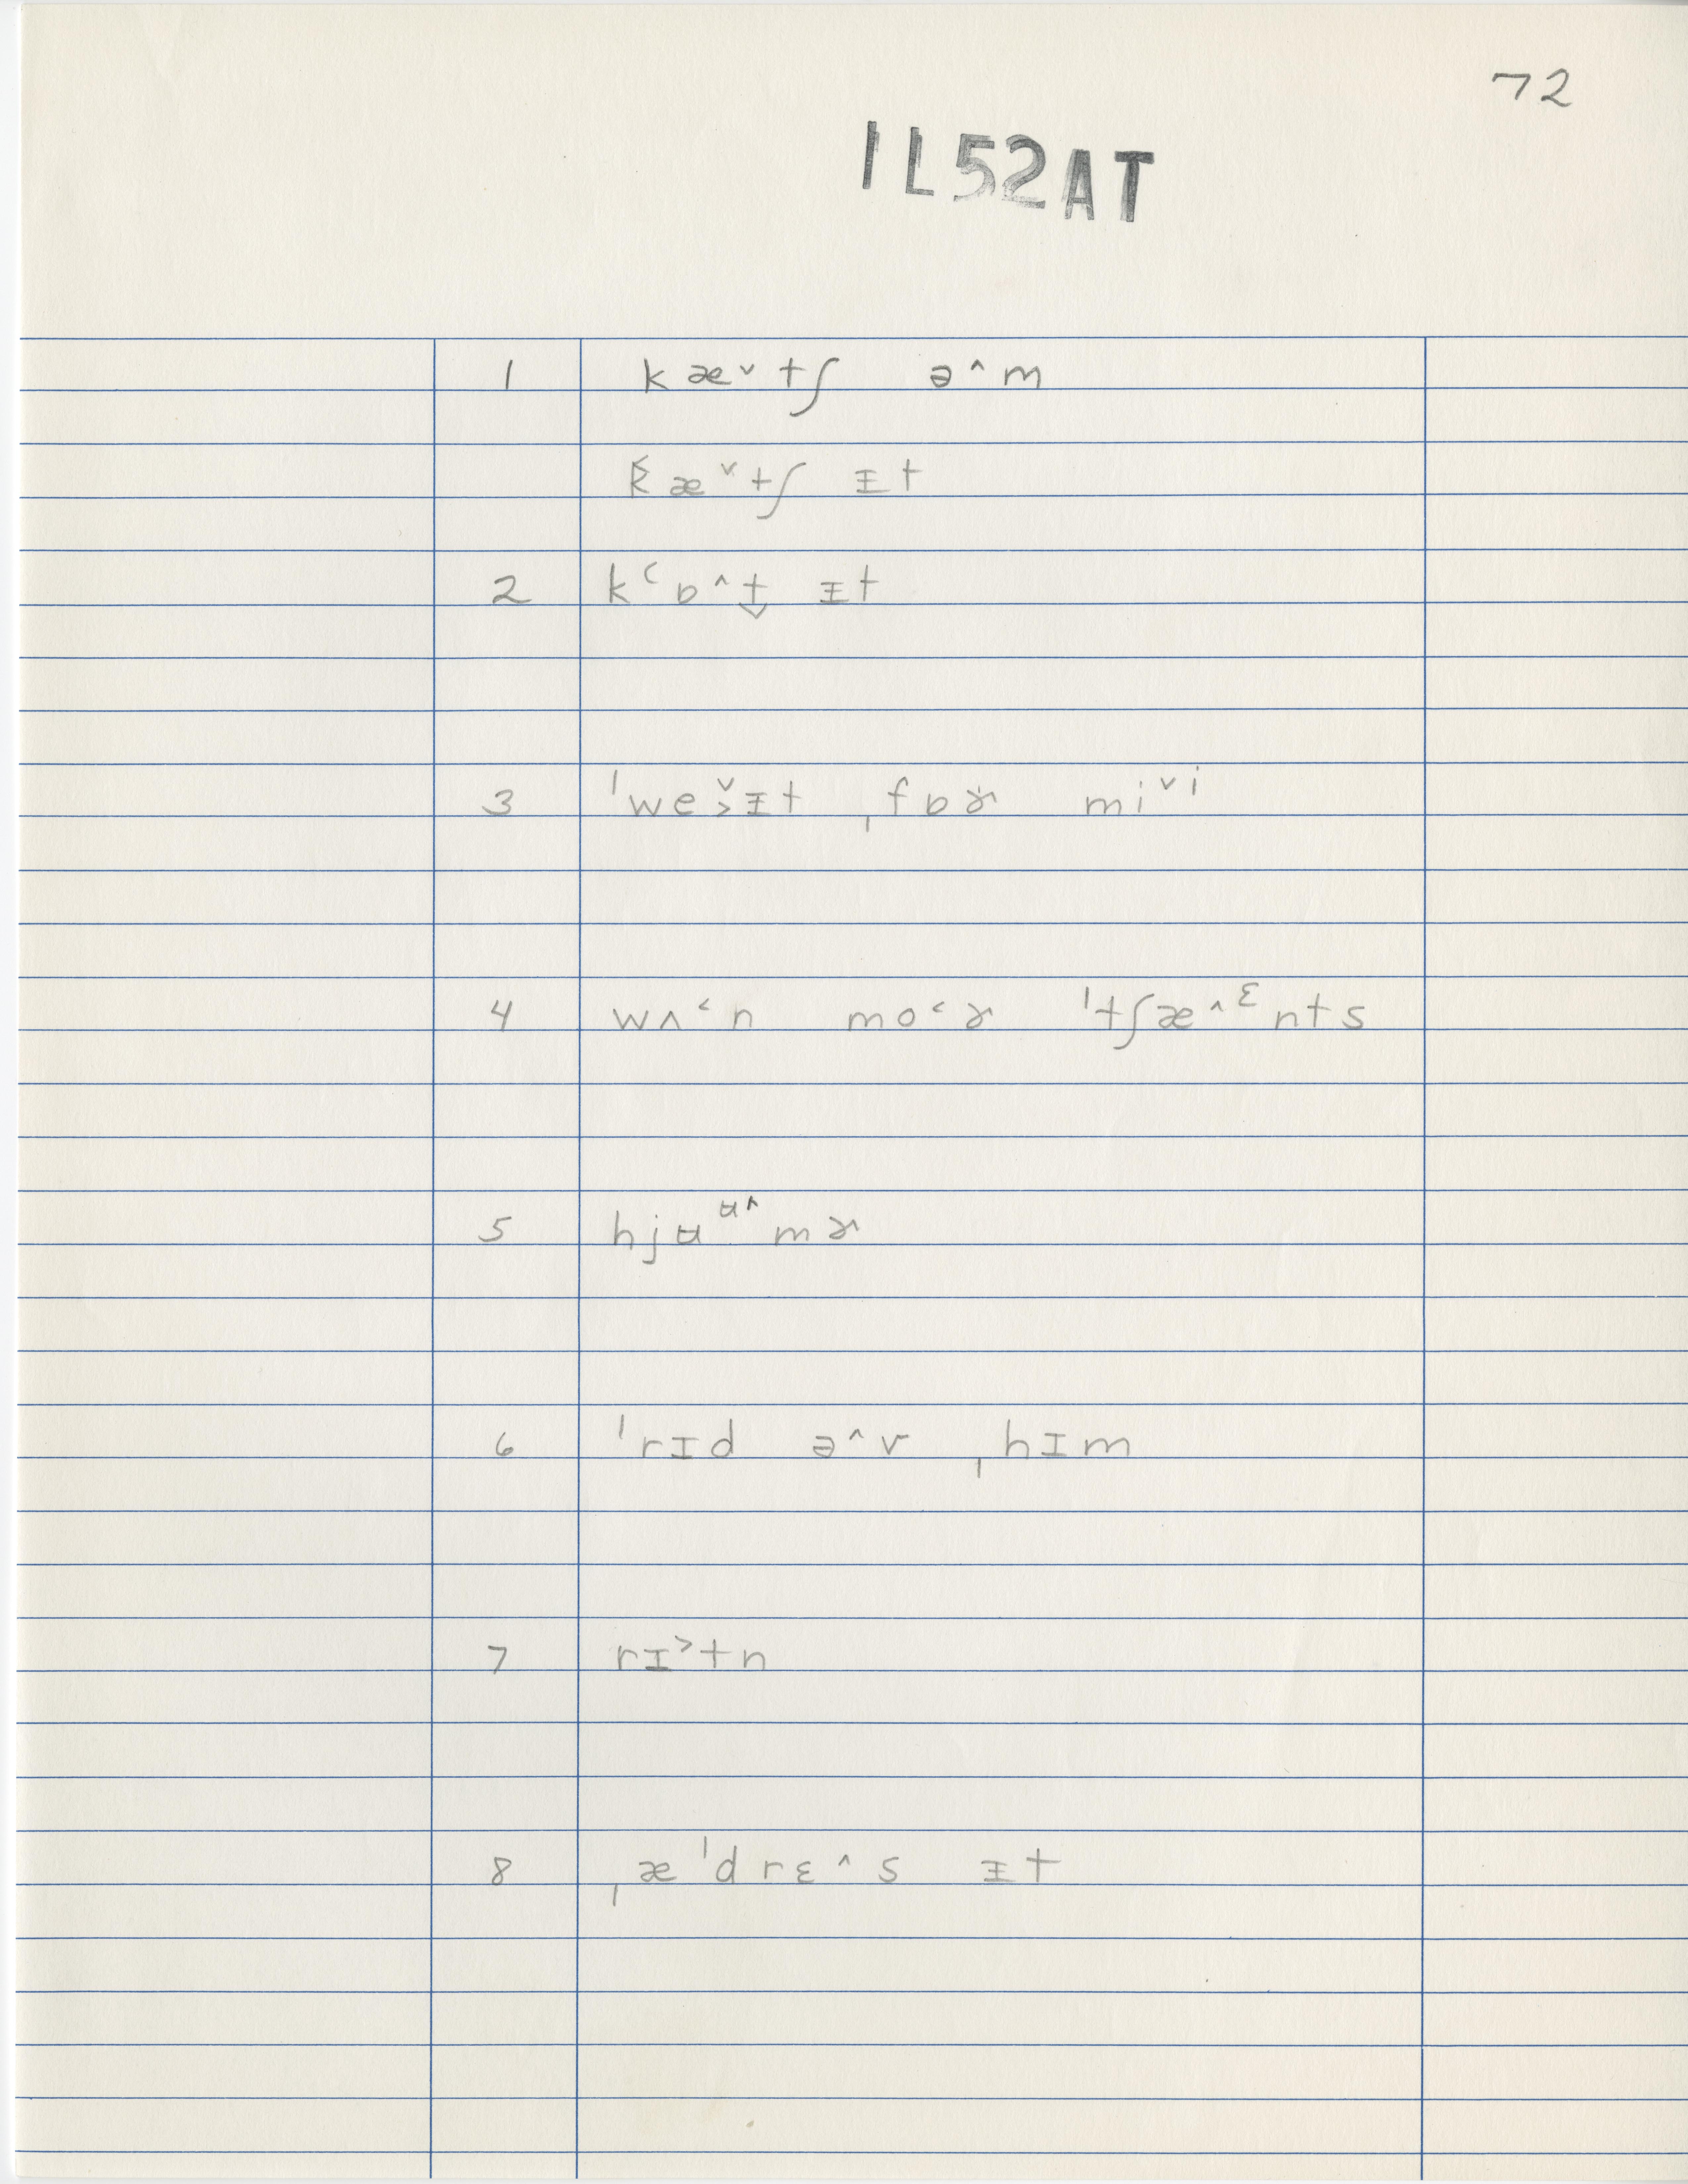 72
IL52AT
1 kæ˅tʃ ə˄m
k̡æ˅tʃ ᵻt
2 kʻɒ˄t̬ ᵻt
3 ˈwe˅˃ᵻt ˌfɒɚ mi˅ⁱ
4 wʌ˂n mo˂ɚ ˈtʃæ˄ᵋnts
5 hjʉᶶ˄mɚ
6 ˈrɪd ə˄v ˌhɪm
7 rɪ˃tn
8 ˌæˈdrɛ˄s ᵻt